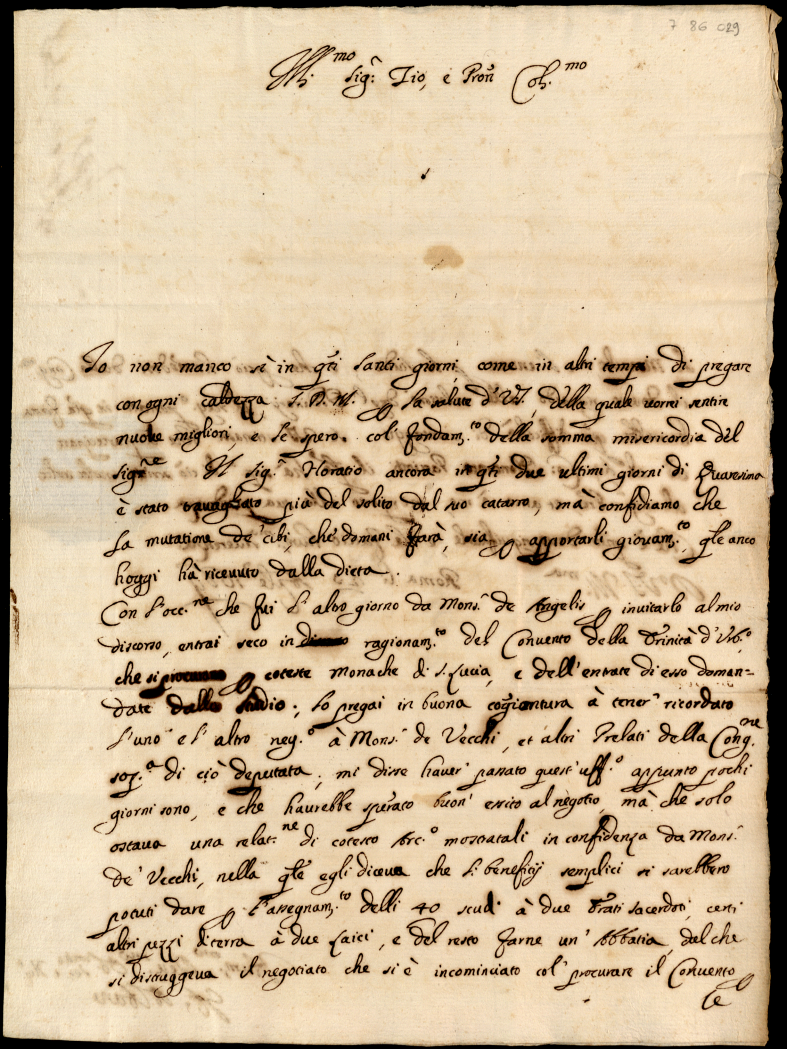 7 86 c29
Ill.mo Sig.r Tio, e Pron Col.mo
Io non manco sì in q̃ti santi giorni, come in altri tempi di pregare
con ogni caldezza S. D. M. p la salute d'V.S., della quale vorrei sentire
nuove migliori, e le spero col' fondam.to della somma misericordia del
Sig.re Il Sig.r Horatio ancora in q̃ti due ultimi giorni di Quaresima
è stato travagliato più del solito dal suo catarro, mà confidiamo che
la mutatione de' cibi, che domani farà, sia p apportarli giovam.to, q̃le anco
hoggi hà ricevuto dalla dieta.
Con l'occ.ne che fui l'altro giorno da Mons.r de Angelis p invitarlo al mio
discorso, entrai seco in ragionam.to del Convento della Trinità d'Urb.o
che si procurava p coteste monache di S. Lucia, e dell'entrate di esso doman-
date dallo studio; lo pregai in buona cogiontura à tener' ricordato
l'uno e l'altro neg.o à Mons.r de Vecchi, et altri Prelati della Cong.ne
sop.a di ciò deputata; mi disse haver' passato quest'uff.o appunto pochi
giorni sono, e che haurebbe sperato buon' essito al negotio, mà che solo
ostava una relat.ne di cotesto Arc.o mostratali in confidenza da Mons.r
de' Vecchi, nella q̃le egli diceva che li beneficij semplici si sarebbero
potuti dare p l'assegnam.to delli 40 scudi à due frati sacerdoti, certi
altri pezzi di terra à due laici, e del resto farne un' Abbatia dal che
si distruggeva il negotiato che si è incominciato col' procurare il Convento